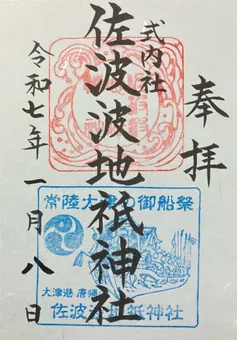 奉拝
式内社
佐波波地祇神社
令和七年一月八日
常陸大津の御船祭
大津港 唐帰山
佐波波地祇神社